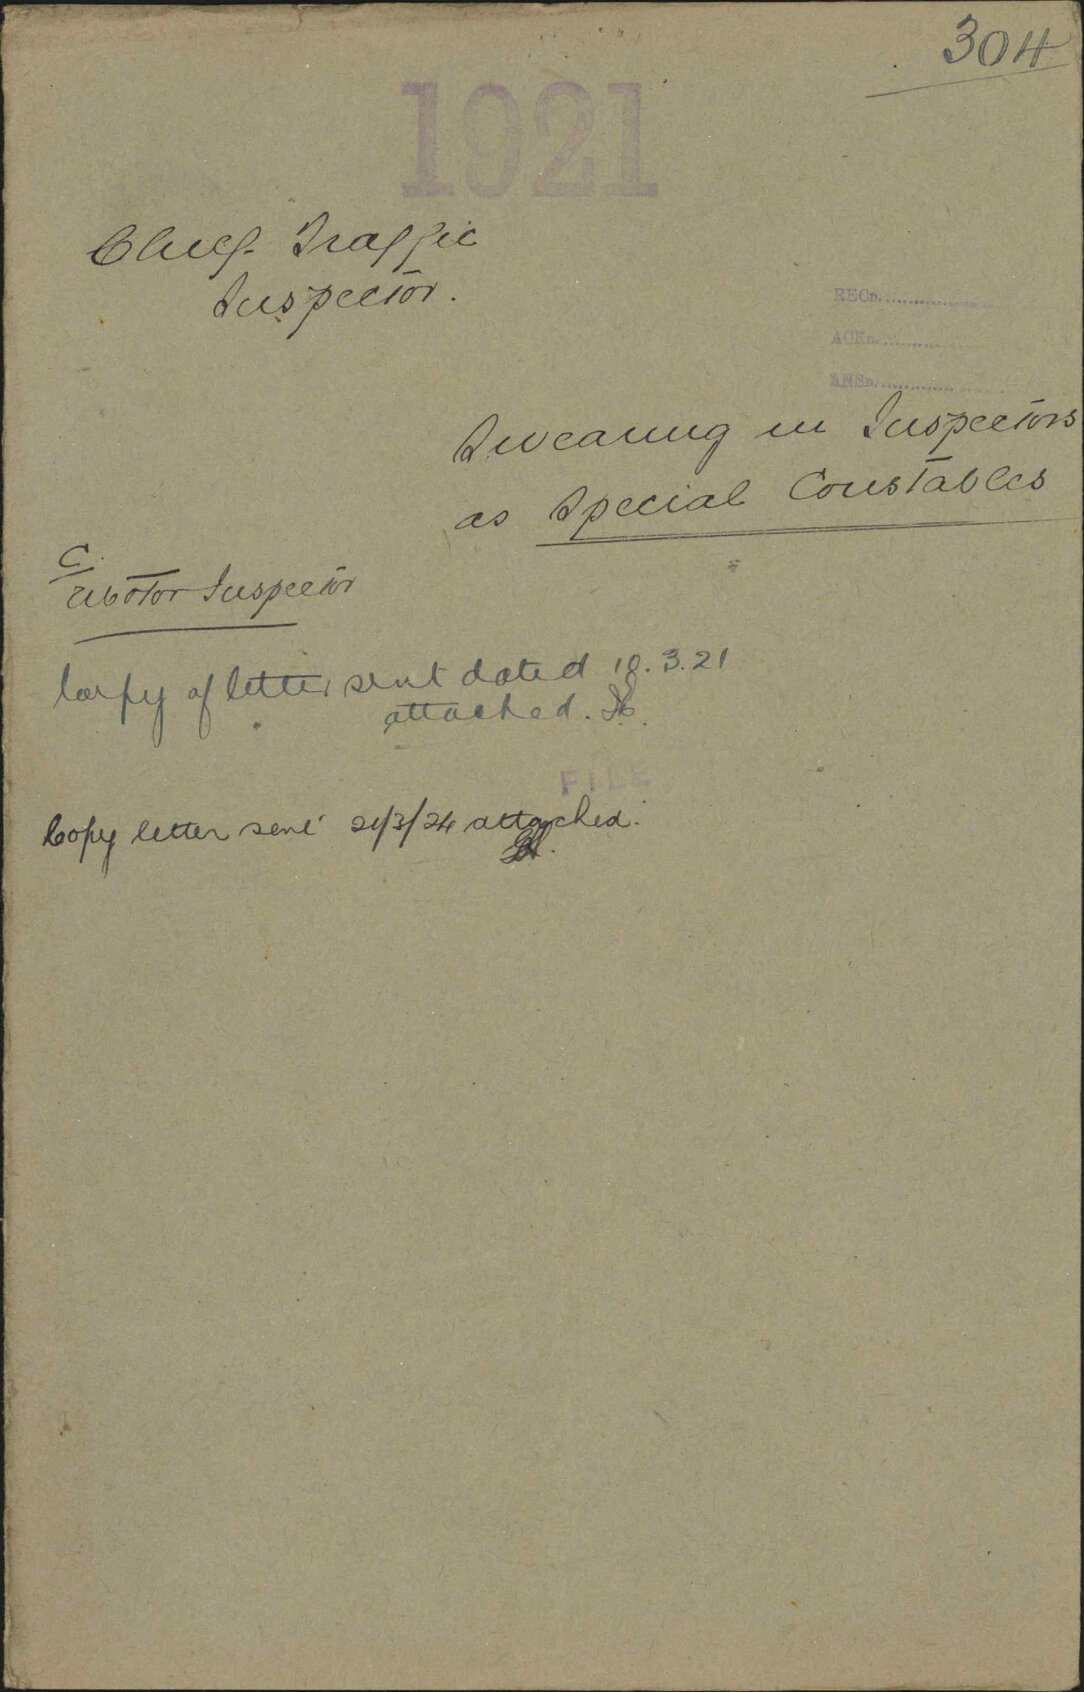 304
1921
Chief Traffic
Inspector.
RECD.
ACKD.
ANSD.
Swearing in Inspectors
as Special Constables
C
Motor Inspector
Copy of letter sent dated 10.3.21
attached.
FILE
Copy letter sent 21/3/24 attached.